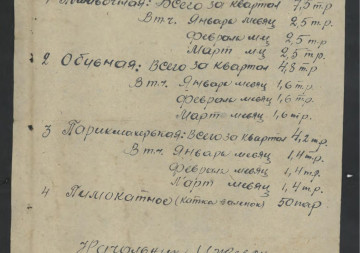 1 Пошивочная: Всего за квартал 7,5 т.р
В т.ч. Январь месяц 2,5 т.р
Февраль м-ц 2,5 т.р
Март м-ц 2,5 т.р.
2 Обувная: Всего за квартал 4,8 т.р
В т.ч. Январь месяц 1,6 т.р.
Февраль месяц 1,6 т.р.
Март месяц 1,6 т.р.
3 Парикмахерская: Всего за квартал 4,2 т.р.
В т.ч. Январь месяц 1,4 т.р.
Февраль месяц 1,4 т.р.
Март месяц 1,4 т.р.
4 Пимокатное (катка валенок) 50 пар
Начальник